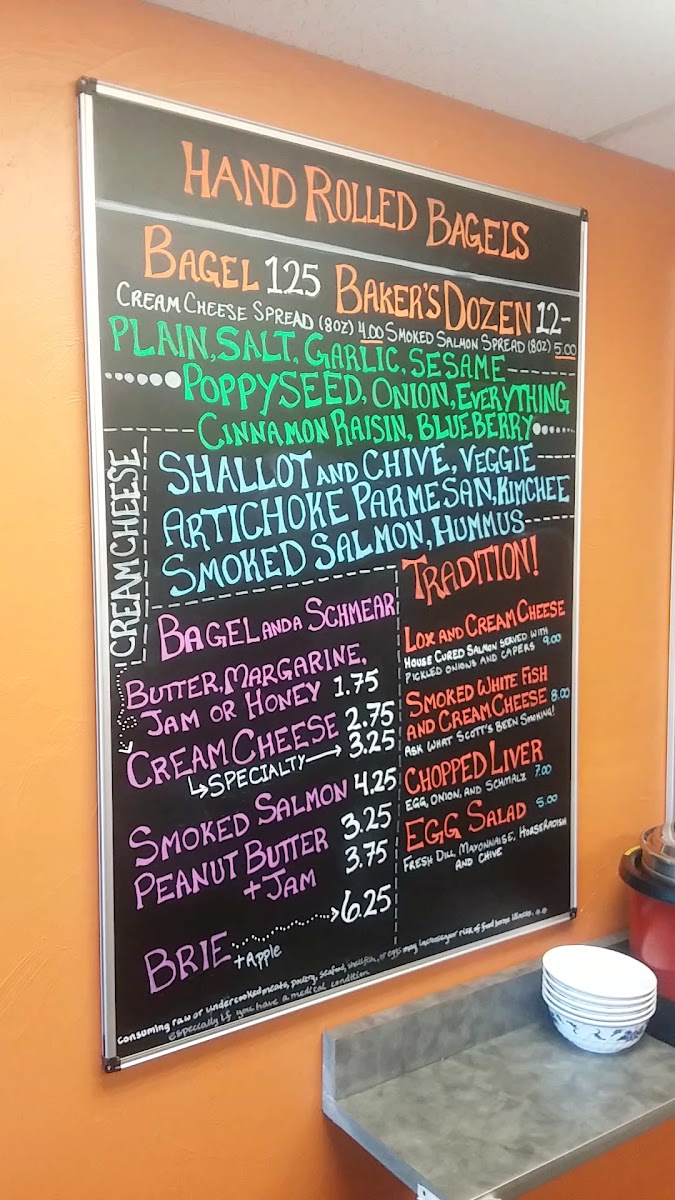 HAND ROLLED BAGELS
BAGEL 125 BAKER'S DOZEN 12-
CREAM CHEESE SPREAD (8OZ) 4.00 SMOKED SALMON SPREAD (8OZ) 5.00
PLAIN, SALT, GARLIC, SESAME
POPPYSEED, ONION, EVERYTHING
CINNAMON RAISIN, BLUEBERRY
CREAM CHEESE
SHALLOT AND CHIVE, VEGGIE
ARTICHOKE PARMESAN, KIMCHEE
SMOKED SALMON, HUMMUS
BAGEL AND A SCHMEAR
BUTTER, MARGARINE,
JAM OR HONEY 1.75
CREAM CHEESE 2.75
SPECIALTY 3.25
SMOKED SALMON 4.25
PEANUT BUTTER 3.25
+ JAM 3.75
BRIE 6.25
+ Apple
TRADITION!
LOX AND CREAM CHEESE
HOUSE CURED SALMON SERVED WITH
PICKLED ONIONS AND CAPERS 9.00
SMOKED WHITE FISH
AND CREAM CHEESE 8.00
ASK WHAT SCOTT'S BEEN SMOKING!
CHOPPED LIVER
EGG, ONION, AND SCHMALZ 7.00
EGG SALAD 5.00
FRESH DILL, MAYONNAISE, HORSERADISH
AND CHIVE
consuming raw or undercooked meats, poultry, seafood, shellfish, or eggs may increase your risk of food borne illness.
especially if you have a medical condition